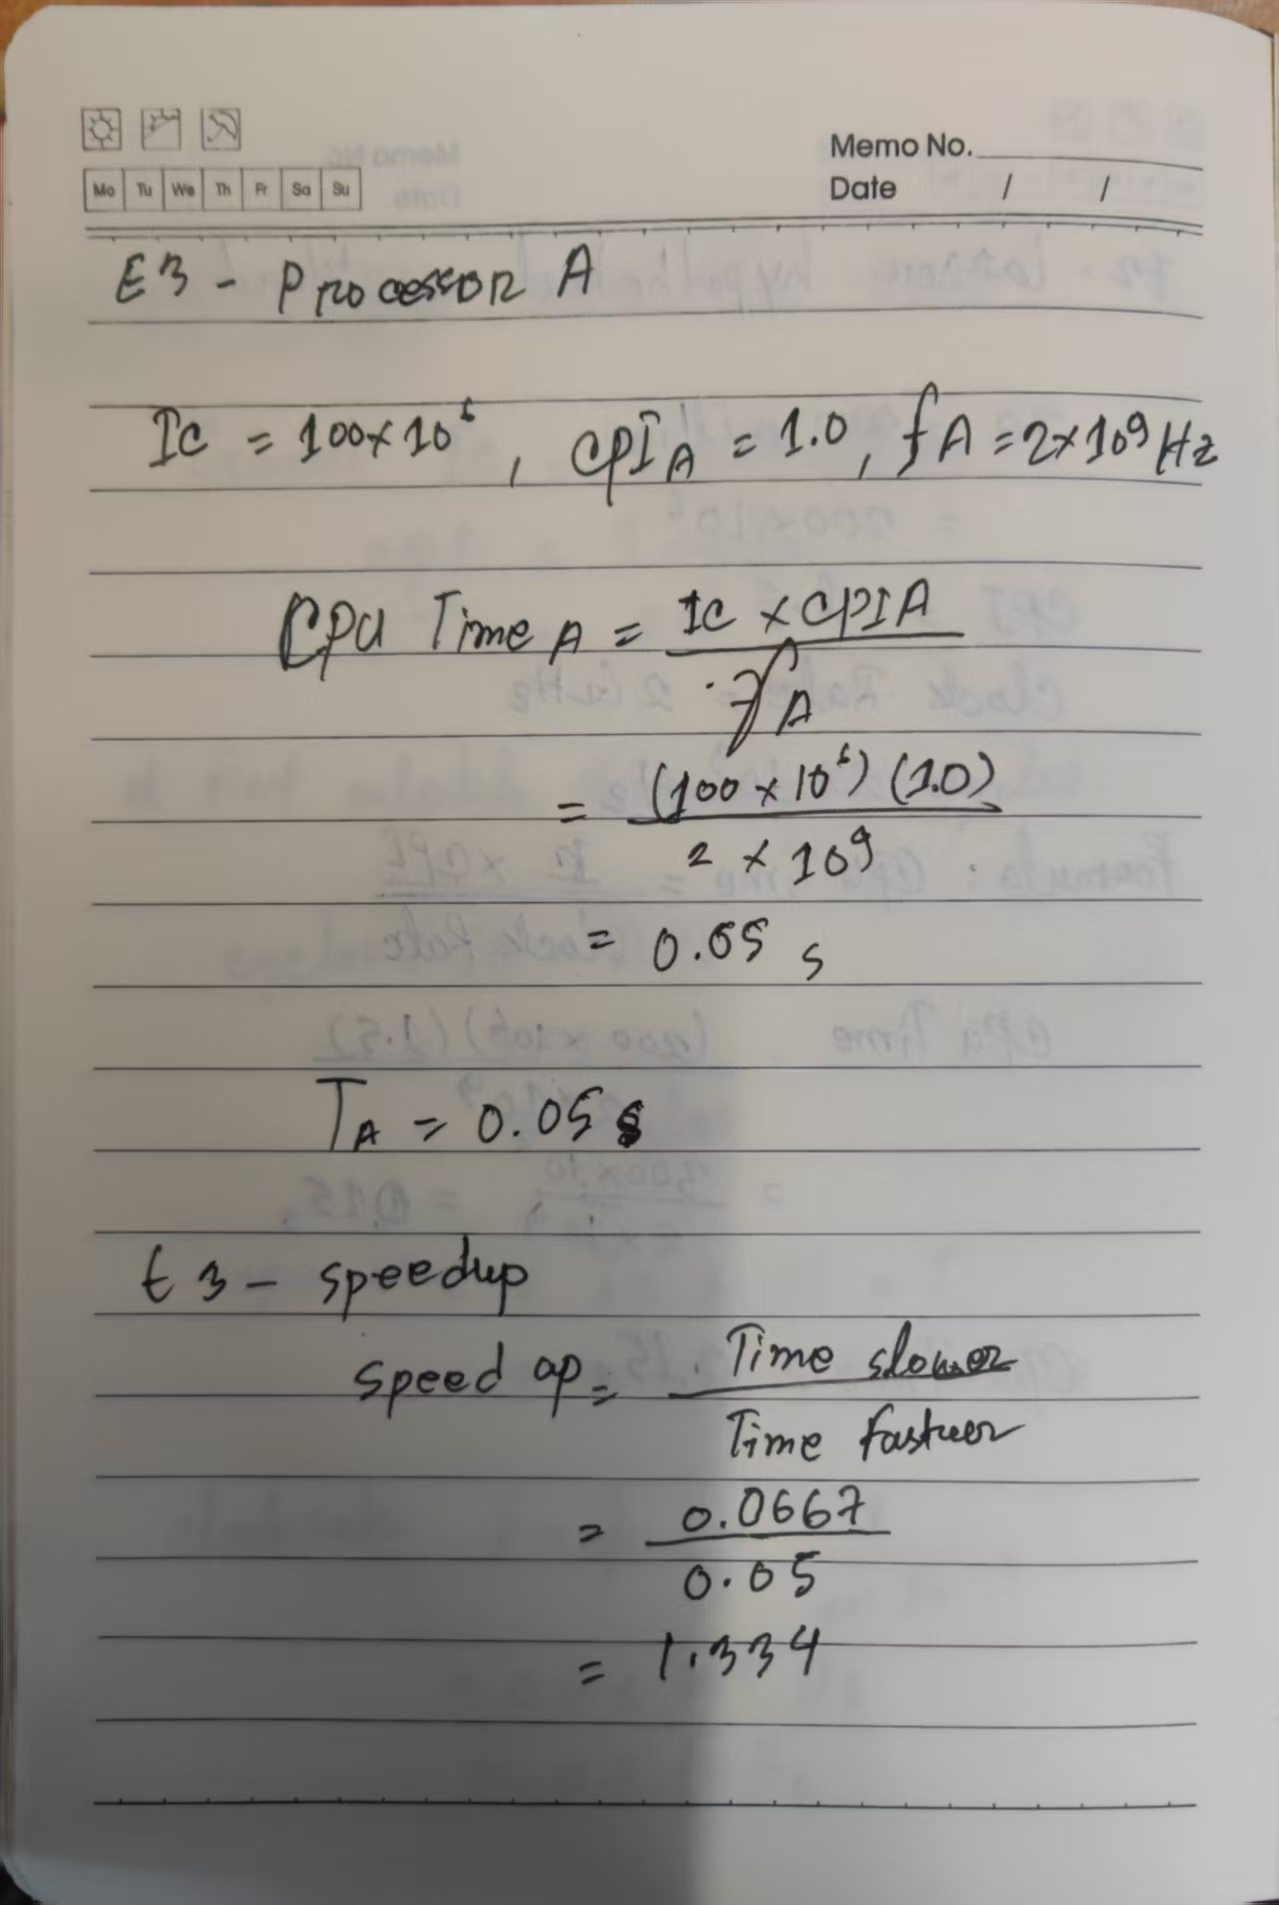 Memo No.
Mo Tu We Th Fr Sa Su
Date / /
E3 - Processor A
Ic = 100×10⁶, CPI_A = 1.0, f_A = 2×10⁹ Hz
CPU Time A = Ic × CPI A / f A
= (100 × 10⁶) (1.0) / 2 × 10⁹
= 0.05 s
T_A = 0.05 s
E3 - speedup
speed up = Time slower / Time fastuer
= 0.0667 / 0.05
= 1.334